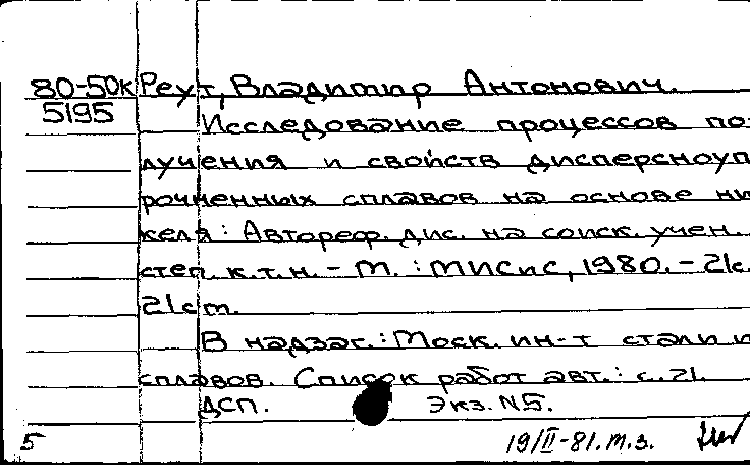 80-50к Реут, Владимир Антонович.
5195
Исследование процессов по-
лучения и свойств дисперсноуп
рочненных сплавов на основе ни
келя: Автореф. дис. на соиск. учен.
степ. к.т.н. - М.: МИСиС, 1980. - 21с.
21 см.
В надзаг.: Моск. ин-т стали и
сплавов. Список работ авт.: с. 21.
ДСП. Экз. N5.
5 19/II-81.т.з.